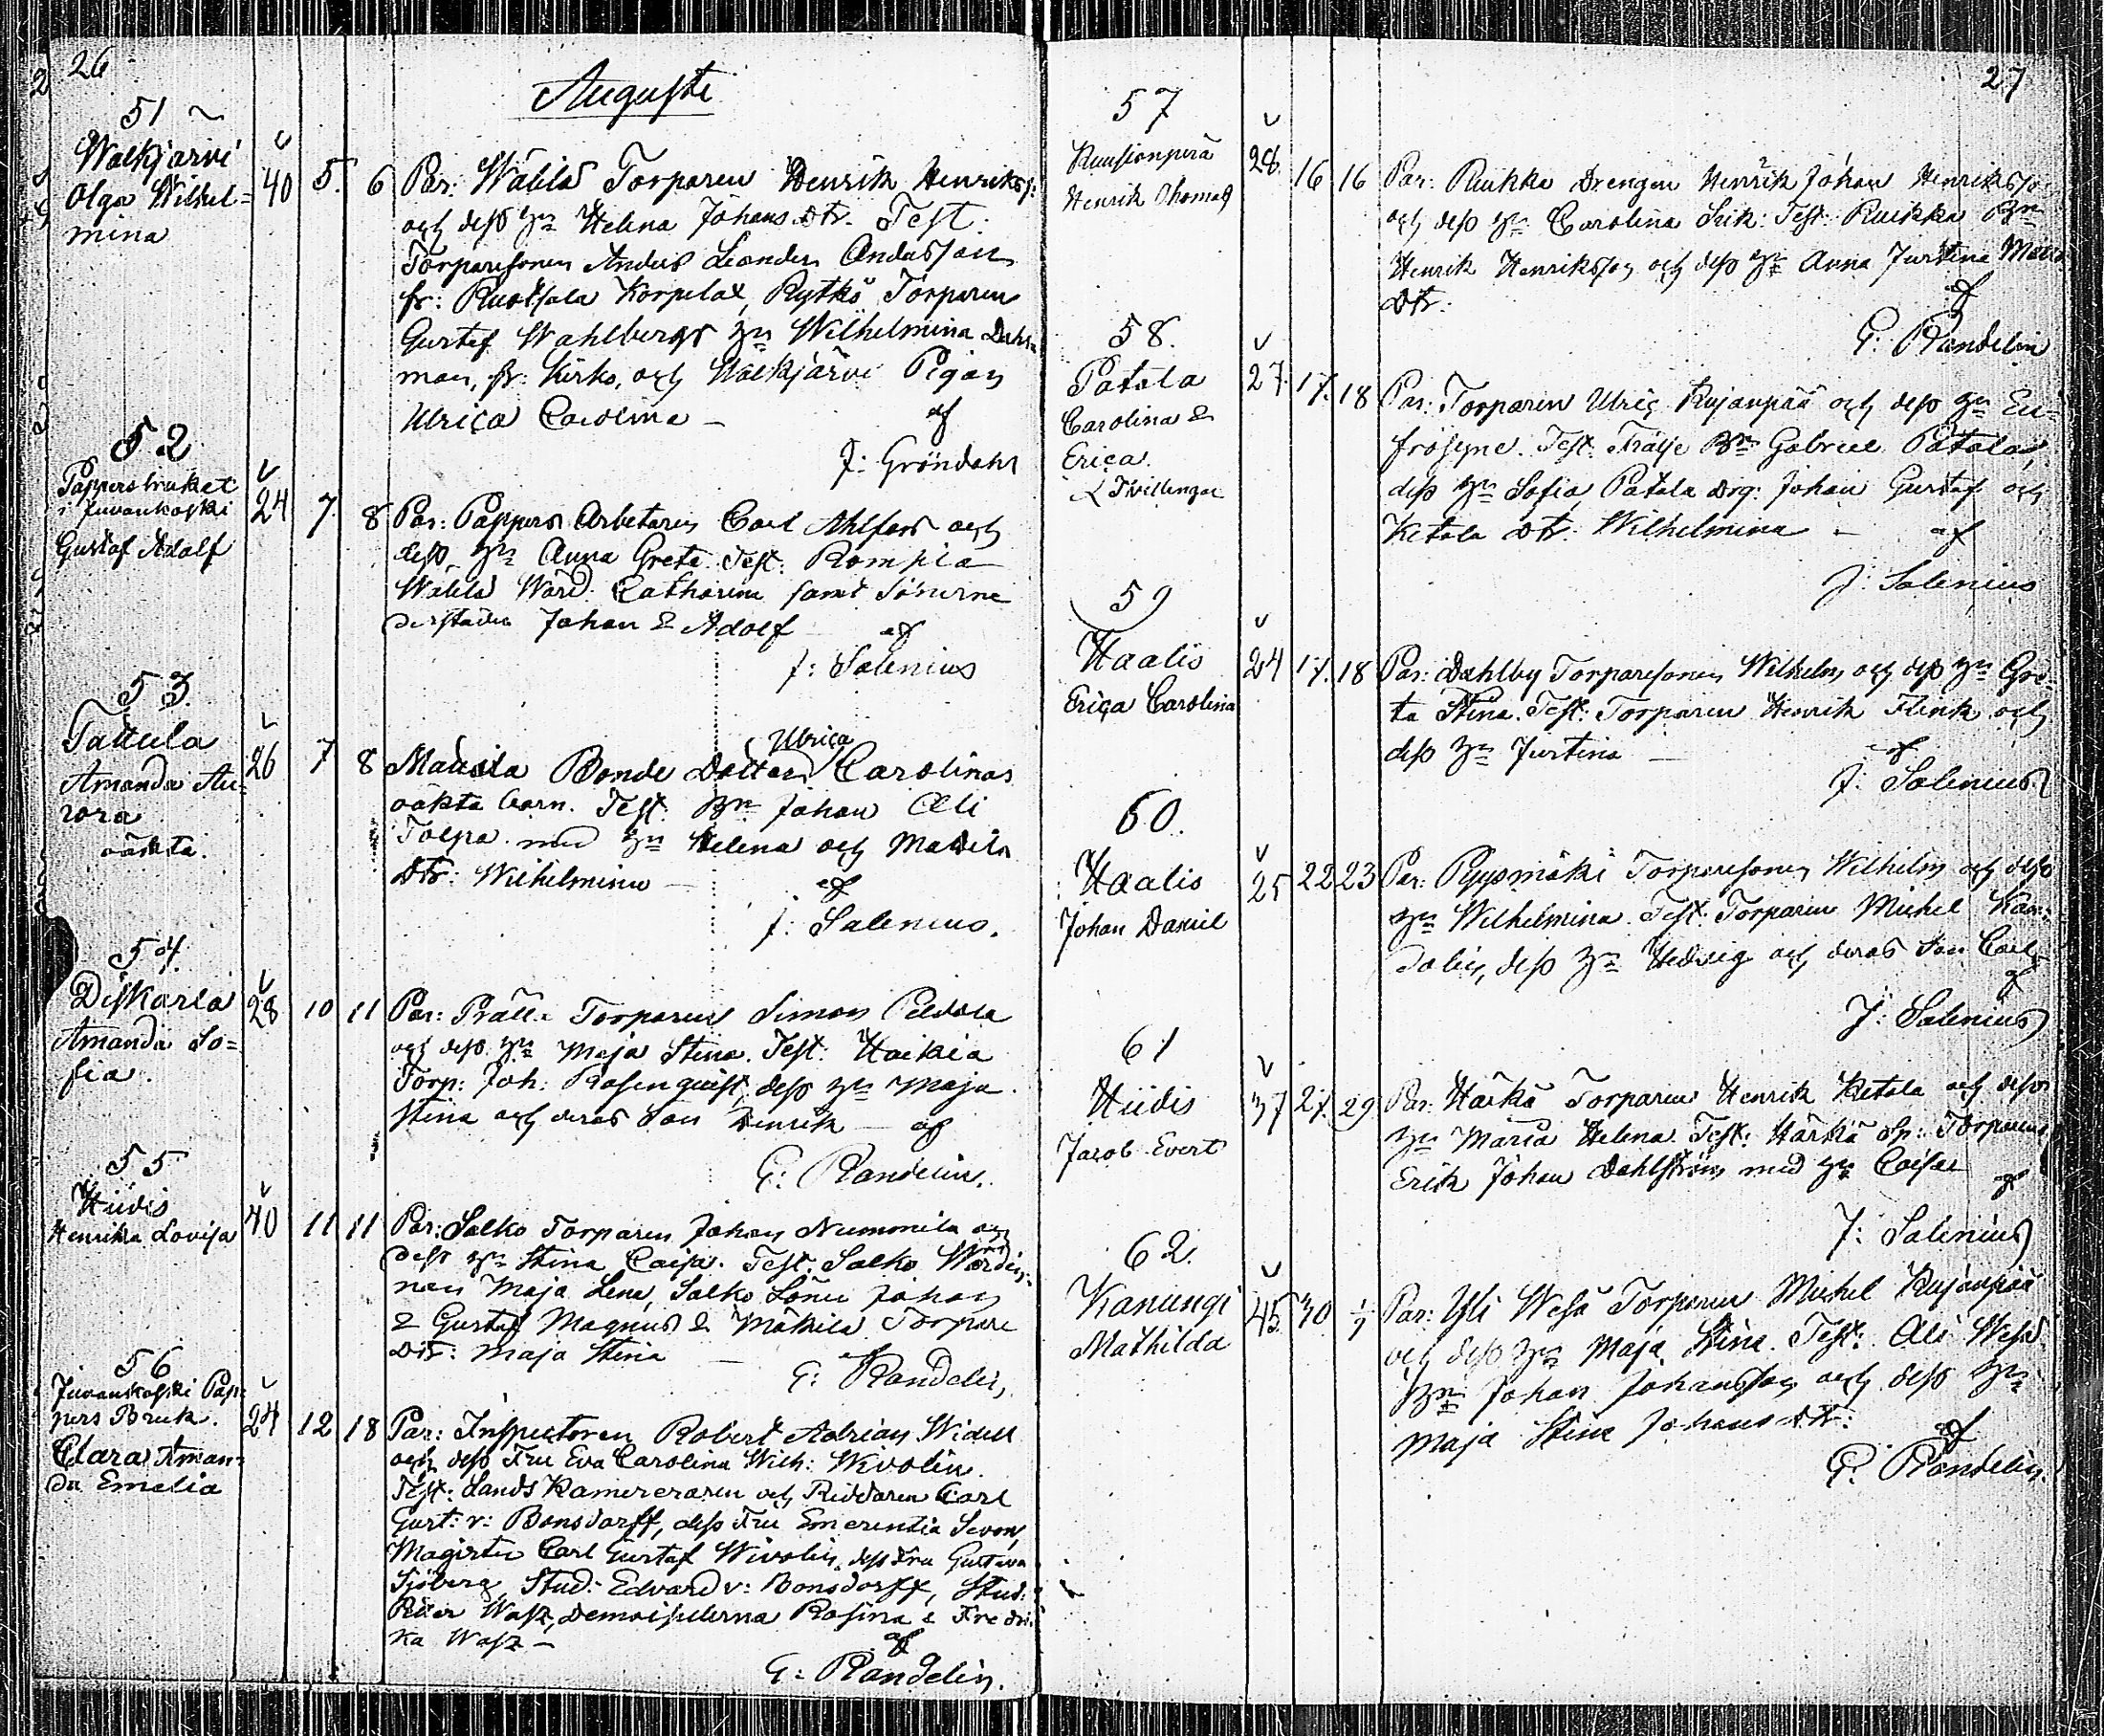 26
Augusti
51
Walkjärvi
Olga Wilhel=
mina
40 5. 6
Par: Wälilä Torparen Henrik Henrikss:
och dess hu Helena Johans Dtr. Test:
Torparesonen Anders Leander Andersson
fr: Ruotsala Korpelax, Rytkö Torparen
Gustaf Wahlbergs hu Wilhelmina
man, fr: Kirko, och Walkjärvi Pigan
Ulrica Carolina — af
J: Gröndahl
52
Pappersbruket
i Juvankoski
Gustaf Adolf
24 7. 8
Par: Pappers Arbetaren Carl Ahlfors och
dess hu Anna Greta. Test: Rompia
Wälilä Wärd: Catharina samt Sönerne
derstädes Johan & Adolf af
J: Salenius
53.
Tattula
Amanda Au=
rora
oäkta.
26 7 8
Ulrica
Mattila Bonde Dottern Carolinas
oäkta barn. Test: Bn Johan Ali
Tolpa med hu Helena och Mattila
Dtr: Wilhelmina — af
J: Salenius.
54.
Diskarla
Amanda So=
fia.
28 10 11
Par: Torparen Simon
och dess hu Maja Stina. Test: Haikia
Torp: Joh: Rosenquist, dess hu Maja
Stina och deras Son Henrik — af
G: Randelin.
55
Hiidis
Henrika Lovisa
40 11 11
Par: Salko Torparen Johan Nummila och
dess hu Stina Caisa. Test: Salko Wärdin=
nan Maja Lena, Salko Söner Johan
& Gustaf Magnus & Mäkilä Torpare
Dtr: Maja Stina — af
G: Randelin,
56
Juvankoski Pap=
pers Bruk.
Clara Aman=
da Emelia
24 12 18
Par: Inspectoren Robert Adrian Widell
och dess Fru Eva Carolina Wilh: Wivolin.
Test: Lands Kamereraren och Riddaren Carl
Gust: v: Bonsdorff, dess Fru Emerentia Sevon,
Magister Carl Gustaf Wivolin, dess Fru Gustava
Sjöberg, Stud: Edvard v: Bonsdorff, Stud:
Wasz, Demoisellerna Rosina & Fredri=
ka Wasz — af
G: Randelin.
27
57
Ruusionperä
Henrik Thomas
28 16 16
Par: Ruikka Drengen Henrik Johan Henriksson
och dess hu Carolina Erik: Test: Ruikka Bn
Henrik Henriksson och dess hu Anna Justina Matts
Dtr: af
G: Randelin
58.
Patola
Carolina &
Erica.
Tvillingar
27. 17. 18
Par: Torparen Ulric Kujanpää och dess hu Eu=
frosyne. Test: Bn Gabriel Patola,
dess hu Sofia Patola Drg: Johan Gustaf och
Ketola Dtr: Wilhelmina — af
J: Salenius
59
Haalis
Erica Carolina
24 17. 18
Par: Dahlby Torparesonen Wilhelm och dess hu Gre=
ta Stina. Test: Torparen Henrik Flink och
dess hu Justina — af
J: Salenius
60.
Haalis
Johan Daniel
25 22 23
Par: Ryysmäki Torparesonen Wilhelm och dess
hu Wilhelmina. Test: Torparen Michel Kan=
dolin, dess hu Hedvig och deras Son Carl
af
J: Salenius
61
Hiidis
Jacob Evert
37 27. 29
Par: Härkä Torparen Henrik Ketola och dess
hu Maria Helena. Test: Härkä Sp: Torparen
Erik Johan Dahlström med hu Caisa
af
J: Salenius
62.
Kanungi
Mathilda
45 30 1/7
Par: Yli Wesa Torparen Michel Kujanpää
och dess hu Maja Stina. Test: Ali Wesa
Bn Johan Johansson och dess hu
Maja Stina Johans Dtr:
af
G: Randelin.